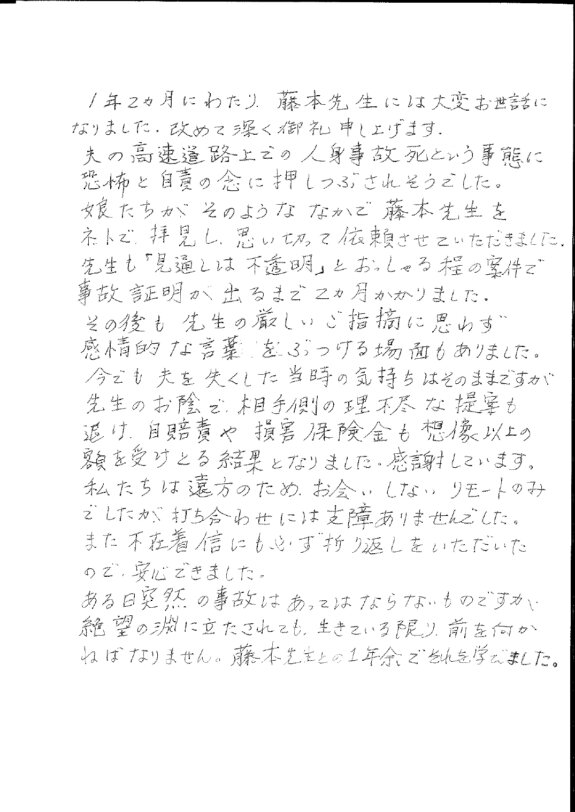 1年2ヵ月にわたり、藤本先生には大変お世話に
なりました。改めて深く御礼申し上げます。
夫の高速道路上での人身事故死という事態に
恐怖と自責の念に押しつぶされそうでした。
娘たちがそのような なかで 藤本先生を
ネットで、拝見し、思い切って依頼させていただきました。
先生も「見通しは不透明」とおっしゃる程の案件で
事故証明が出るまで2ヵ月かかりました。
その後も 先生の厳しいご指摘に思わず
感情的な言葉をぶつける場面もありました。
今でも夫を失くした当時の気持ちはそのままですが
先生のお陰で、相手側の理不尽な提案も
退け、自賠責や損害保険金も想像以上の
額を受けとる結果となりました。感謝しています。
私たちは遠方のため、お会いしないリモートのみ
でしたが打ち合わせには支障ありませんでした。
また不在着信にも必ず折り返しをいただいた
ので、安心できました。
ある日突然の事故はあってはならないものですが、
絶望の淵に立たされても、生きている限り、前を向か
ねばなりません。藤本先生との1年余でそれを学びました。